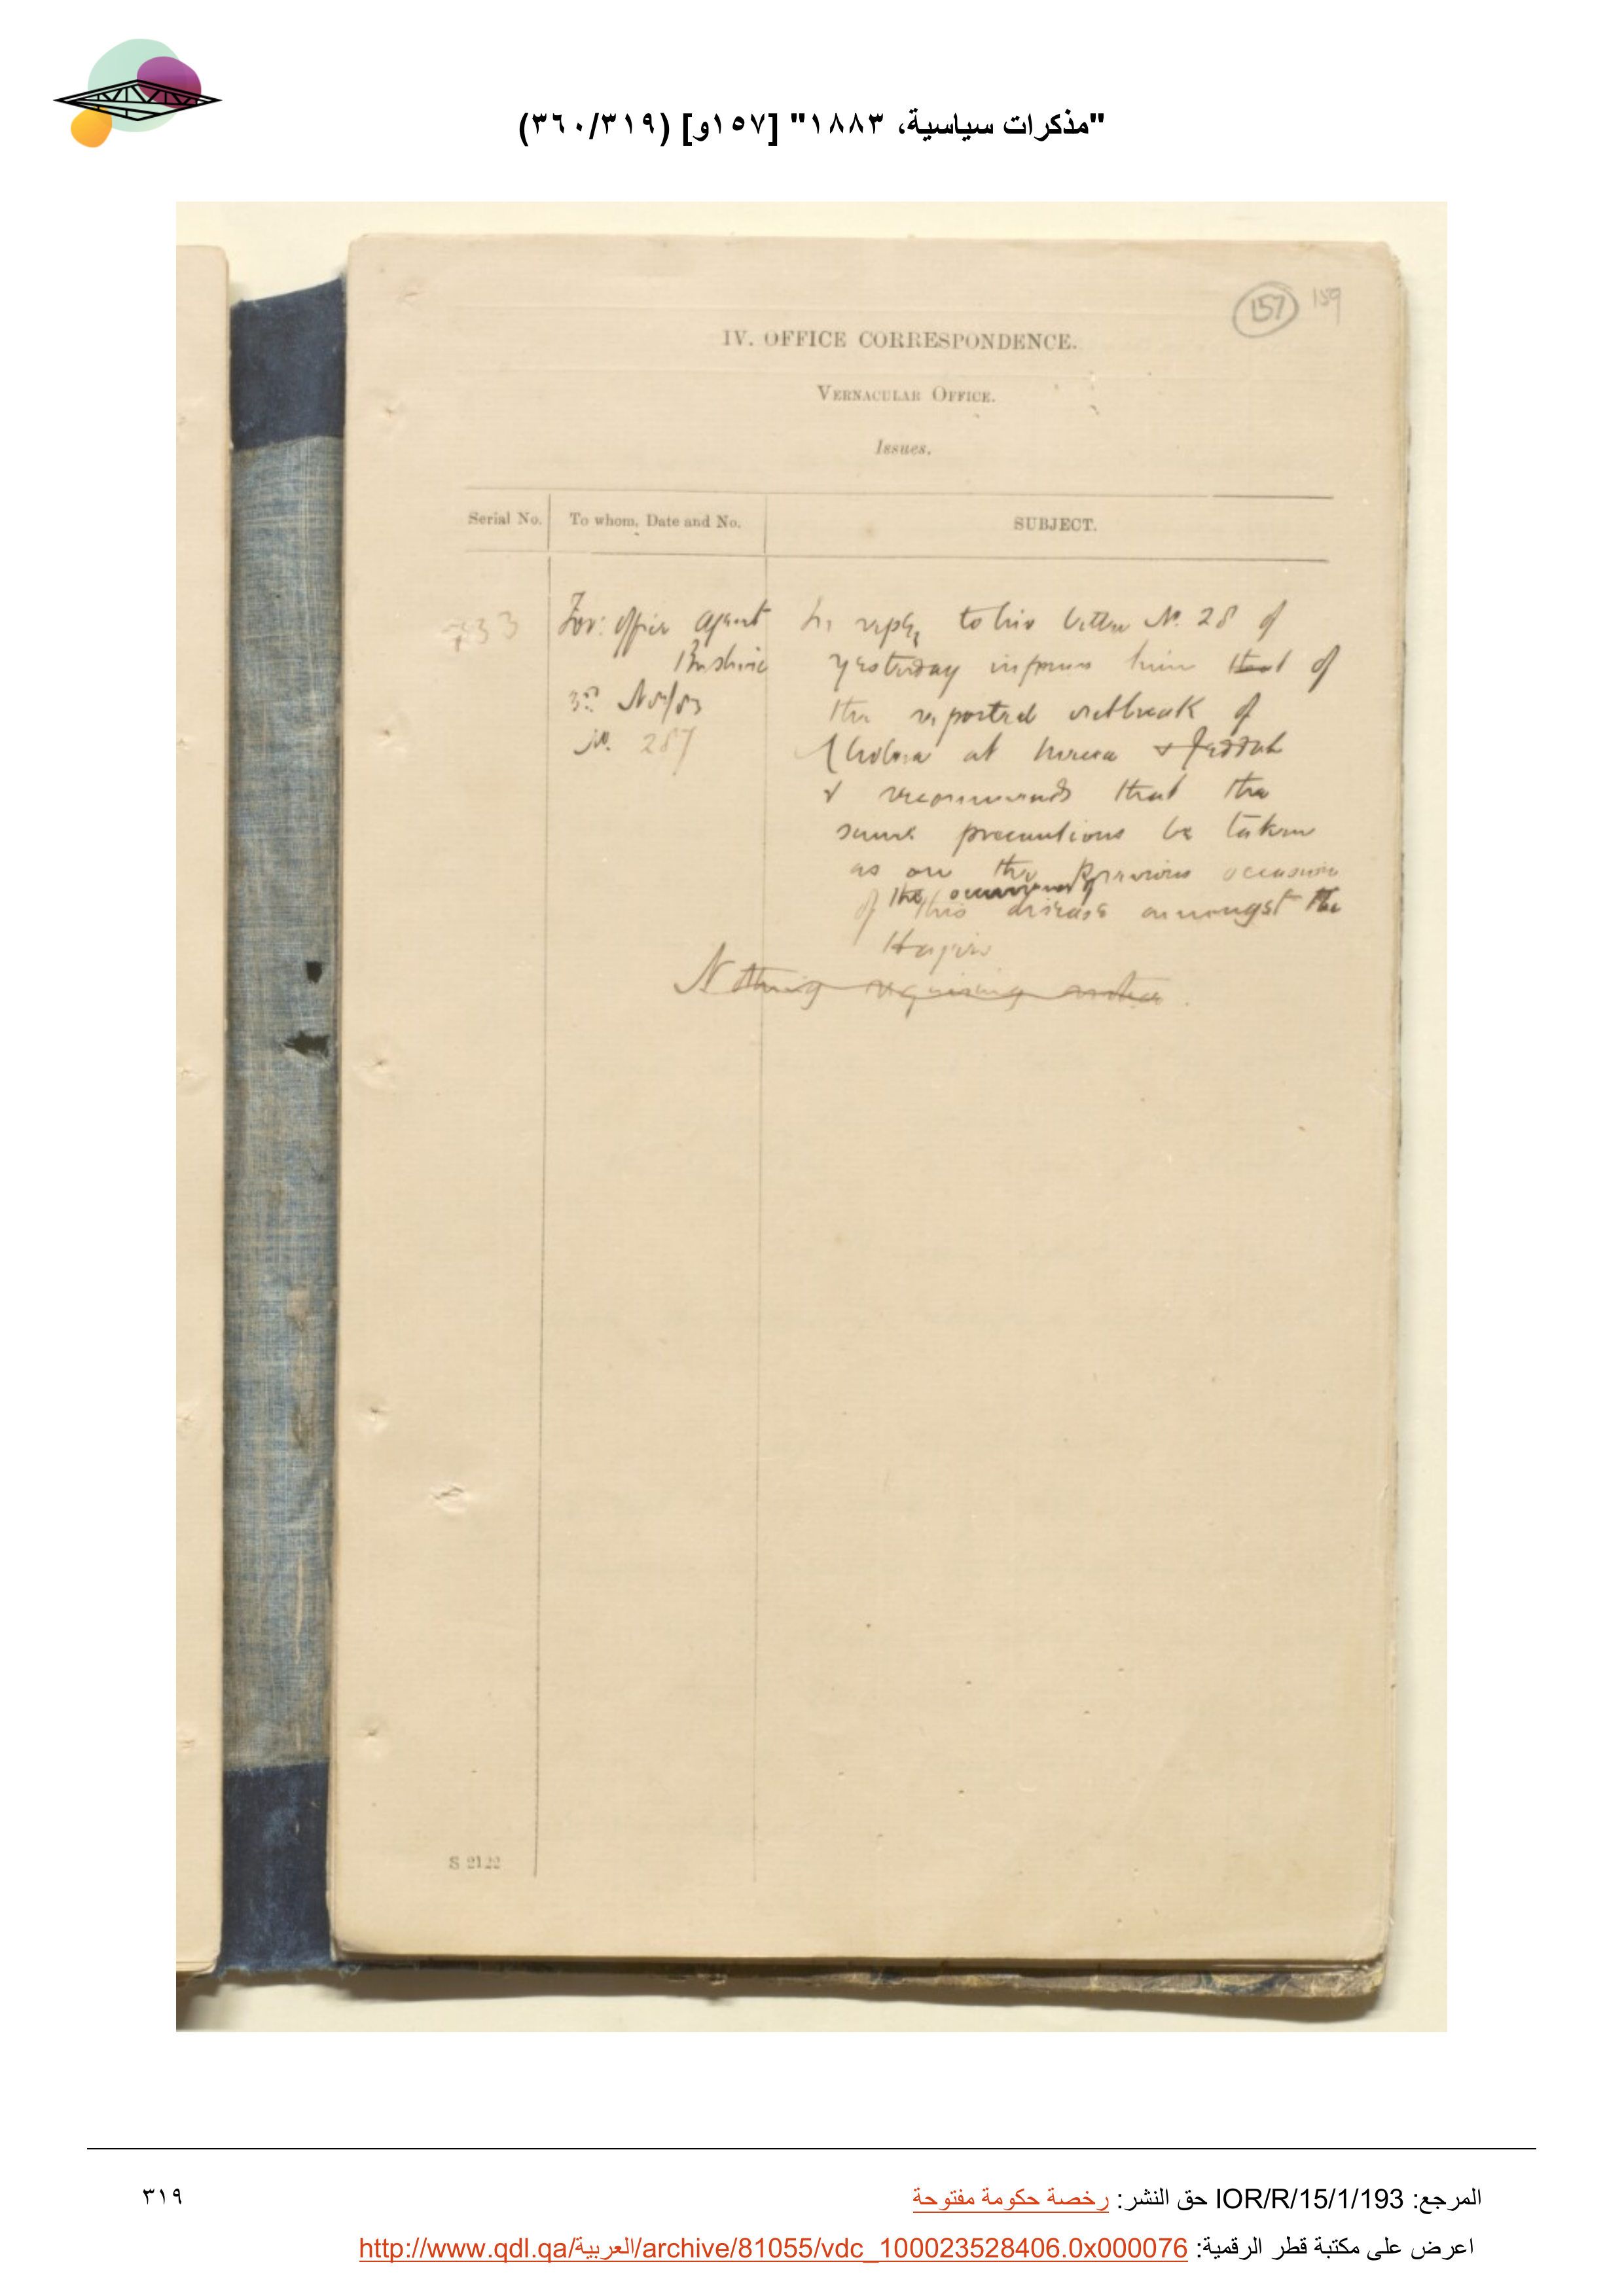 "مذكرات سياسية، ١٨٨٣" [١٥٧و] (٣٦٠/٣١٩)
157 159
IV. OFFICE CORRESPONDENCE.
VERNACULAR OFFICE.
Issues.
Serial No. To whom, Date and No. SUBJECT.
733 For: Office Agent In reply to his letter No. 28 of
Bushire yesterday informs him that of
3rd Nov/83 the reported outbreak of
No. 287 Cholera at Mecca & Jeddah
& recommends that the
same precautions be taken
as on the previous occasion
of the occurrence of
this disease amongst the
Hajis
Nothing requiring notice.
S 2122
المرجع: IOR/R/15/1/193 حق النشر: رخصة حكومة مفتوحة
٣١٩
اعرض على مكتبة قطر الرقمية: http://www.qdl.qa/العربية/archive/81055/vdc_100023528406.0x000076